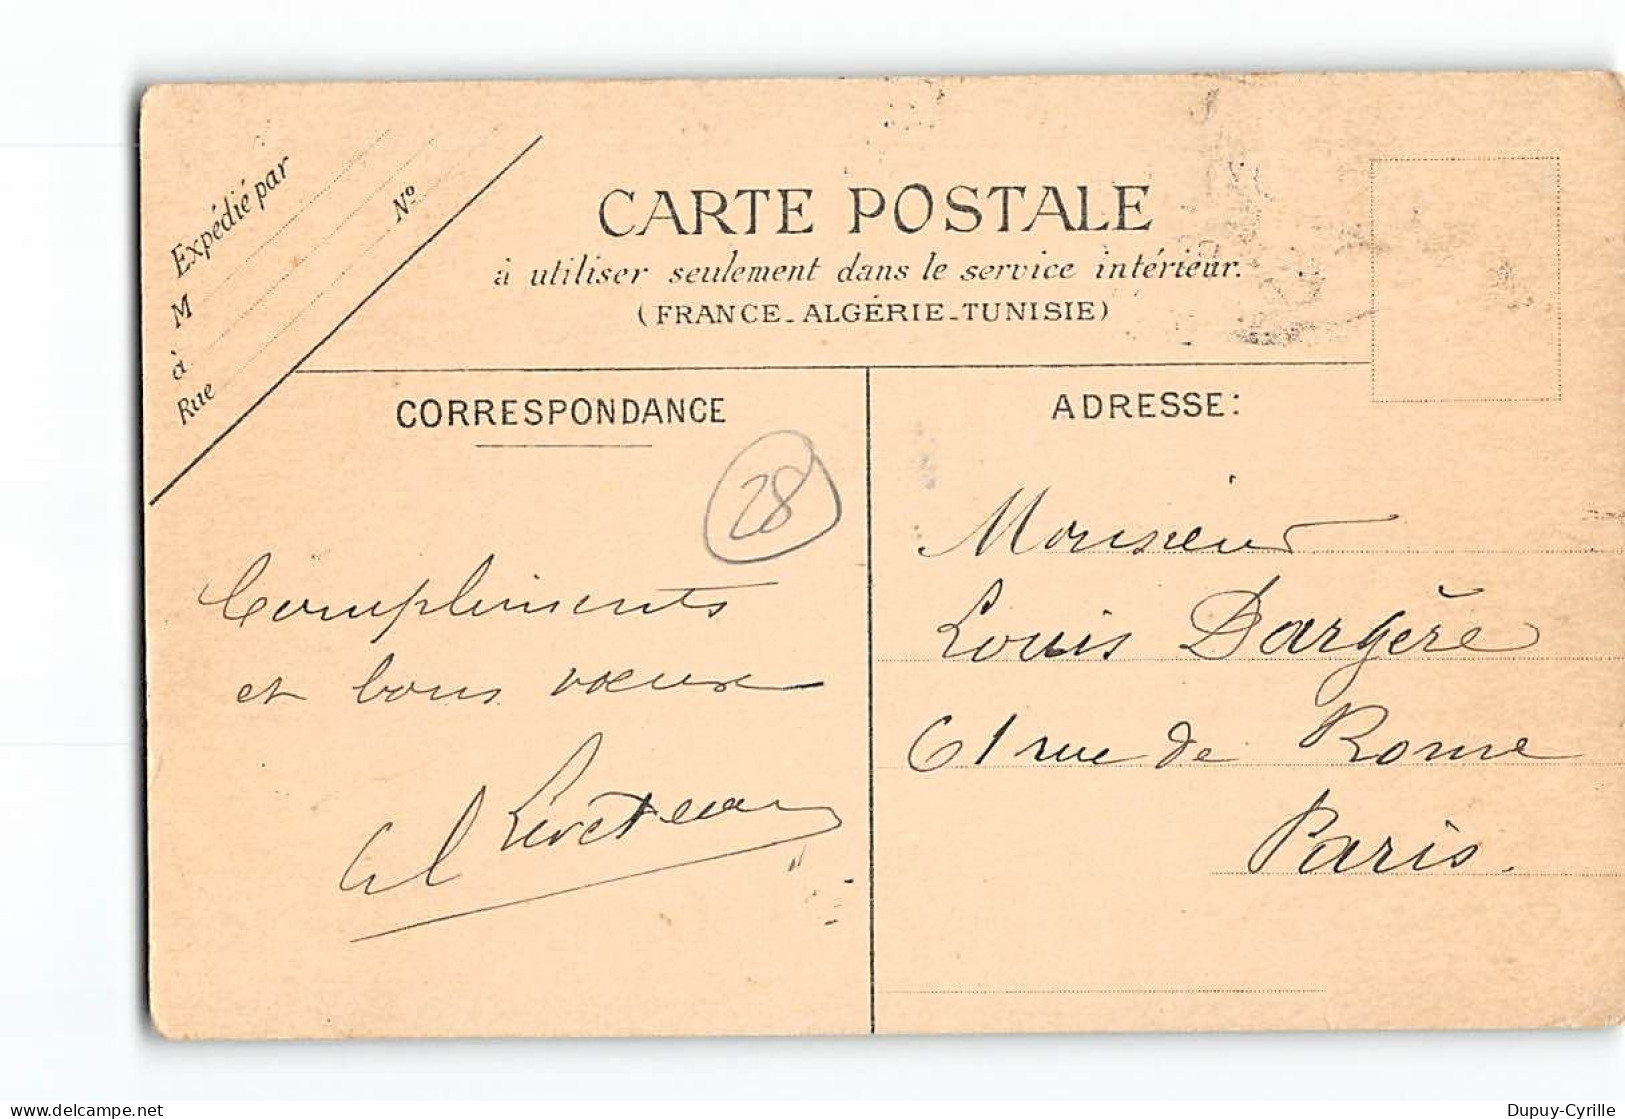 Expédié par
M
à
Rue
Nº
CARTE POSTALE
à utiliser seulement dans le service intérieur.
(FRANCE-ALGÉRIE-TUNISIE)
CORRESPONDANCE
28
Compliments
et bons vœux
ADRESSE:
Monsieur
Louis Dargère
61 rue de Rome
Paris.
delcampe.net
Dupuy-Cyrille